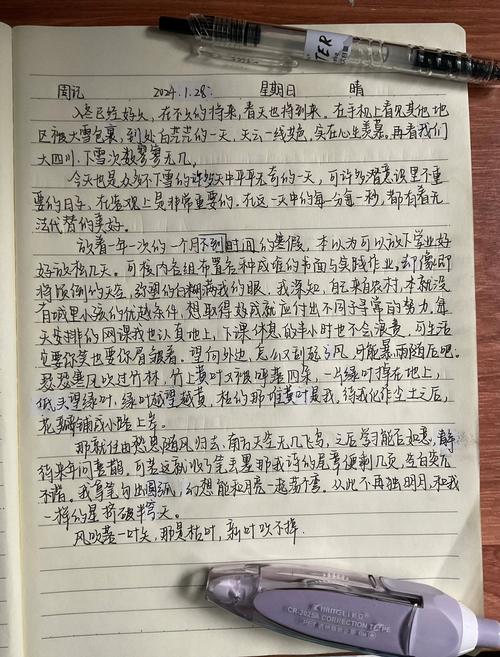 TER
周记 2024.1.28. 星期日 晴
入冬已经好久,在不久的将来,春天也将到来。在手机上看见其他地
区被大雪包裹,到处白茫茫的一天,天云一线著色,实在心生羡慕,再看我们
大四川,下雪次数寥寥无几。
今天也是众多不下雪的许多天中平平无奇的一天,可许多潜意识里不重
要的日子,在客观上是非常重要的,在这一天中的每一分每一秒,都有着无
法代替的美好。
放着一年一次的一个月不到时间的寒假,本以为可以放下学业好
好放松几天。可被内各组布置各种成堆的书面与实践作业,却像即
将倾倒的天空,弥望的白糊满我的眼,我深知,自己来自农村,本就没
有城里小孩的优越条件,想取得好成就应付出不同寻常的努力,每
天安排的网课我也认真地上,下课休息的半小时也不会浪费,可生活
实要你笑也要你眉皱着。望向外边,怎么又刮起了风,可能暴雨随后吧。
瑟瑟寒风吹过竹林,竹上黄叶又被呼落四朵,一片绿叶掉在地上,
低头望绿叶,绿叶越望越黄,枯的那堆黄叶是我,待我化作尘土之后,
花瓣铺成小路上岸。
那就任由愁思随风归去,南方天空无几飞鸟,之后学习能否如意,静
待来年问青鹊,可若这就收了笔丢墨那我诗的尾章便剩几页,空白实
不惜。我拿笔勾出圆弧,幻想能和月亮一起荡个弯。从此不再独明月,和我
一样的星挤破半穹天。
风吹落一叶矢,那是枯叶,新叶吹不掉.
CR-2025A CORRECTION TAPE